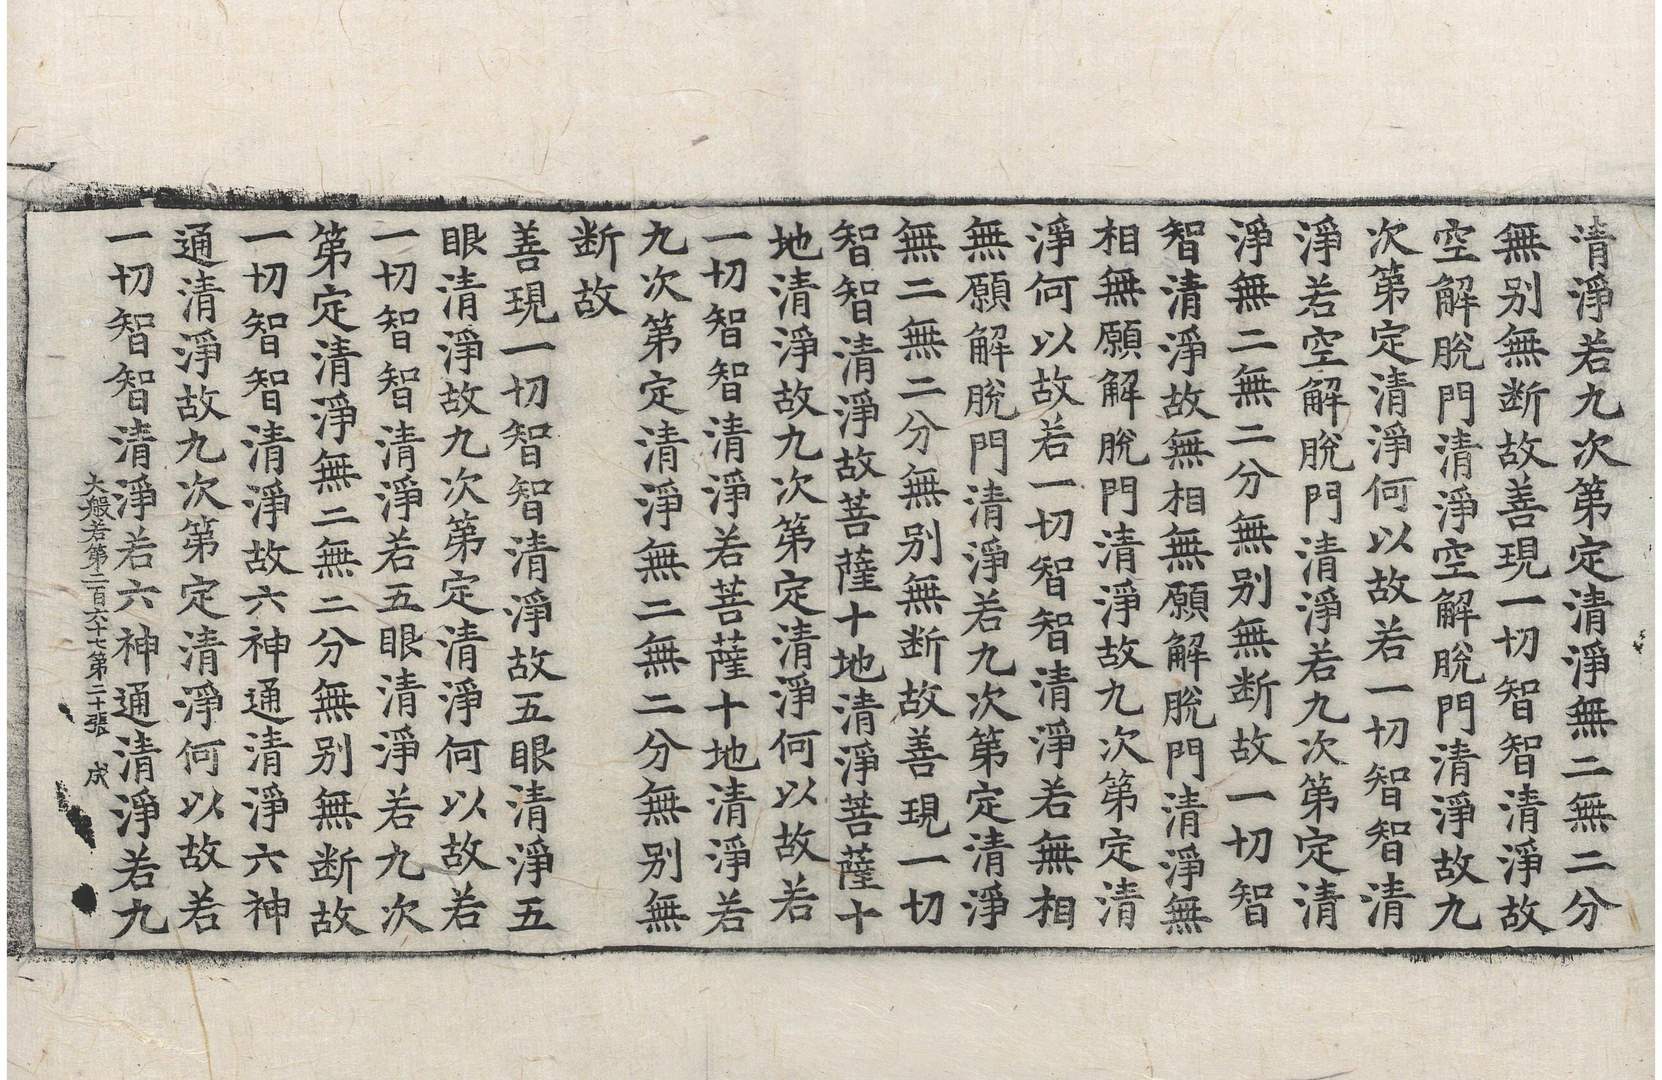 清淨若九次第定清淨無二無二分
無别無断故善現一切智智清淨故
空解脫門清淨空解脫門清淨故九
次第定清淨何以故若一切智智清
淨若空解脫門清淨若九次第定清
淨無二無二分無别無断故一切智
智清淨故無相無願解脫門清淨無
相無願解脫門清淨故九次第定清
淨何以故若一切智智清淨若無相
無願解脫門清淨若九次第定清淨
無二無二分無别無断故善現一切
智智清淨故菩薩十地清淨菩薩十
地清淨故九次第定清淨何以故若
一切智智清淨若菩薩十地清淨若
九次第定清淨無二無二分無别無
断故
善現一切智智清淨故五眼清淨五
眼清淨故九次第定清淨何以故若
一切智智清淨若五眼清淨若九次
第定清淨無二無二分無别無断故
一切智智清淨故六神通清淨六神
通清淨故九次第定清淨何以故若
一切智智清淨若六神通清淨若九
大般若第二百六十七第二十張 成